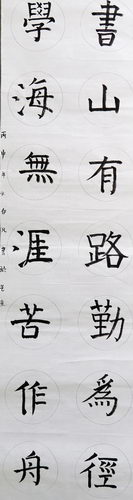 書山有路勤爲徑
學海無涯苦作舟